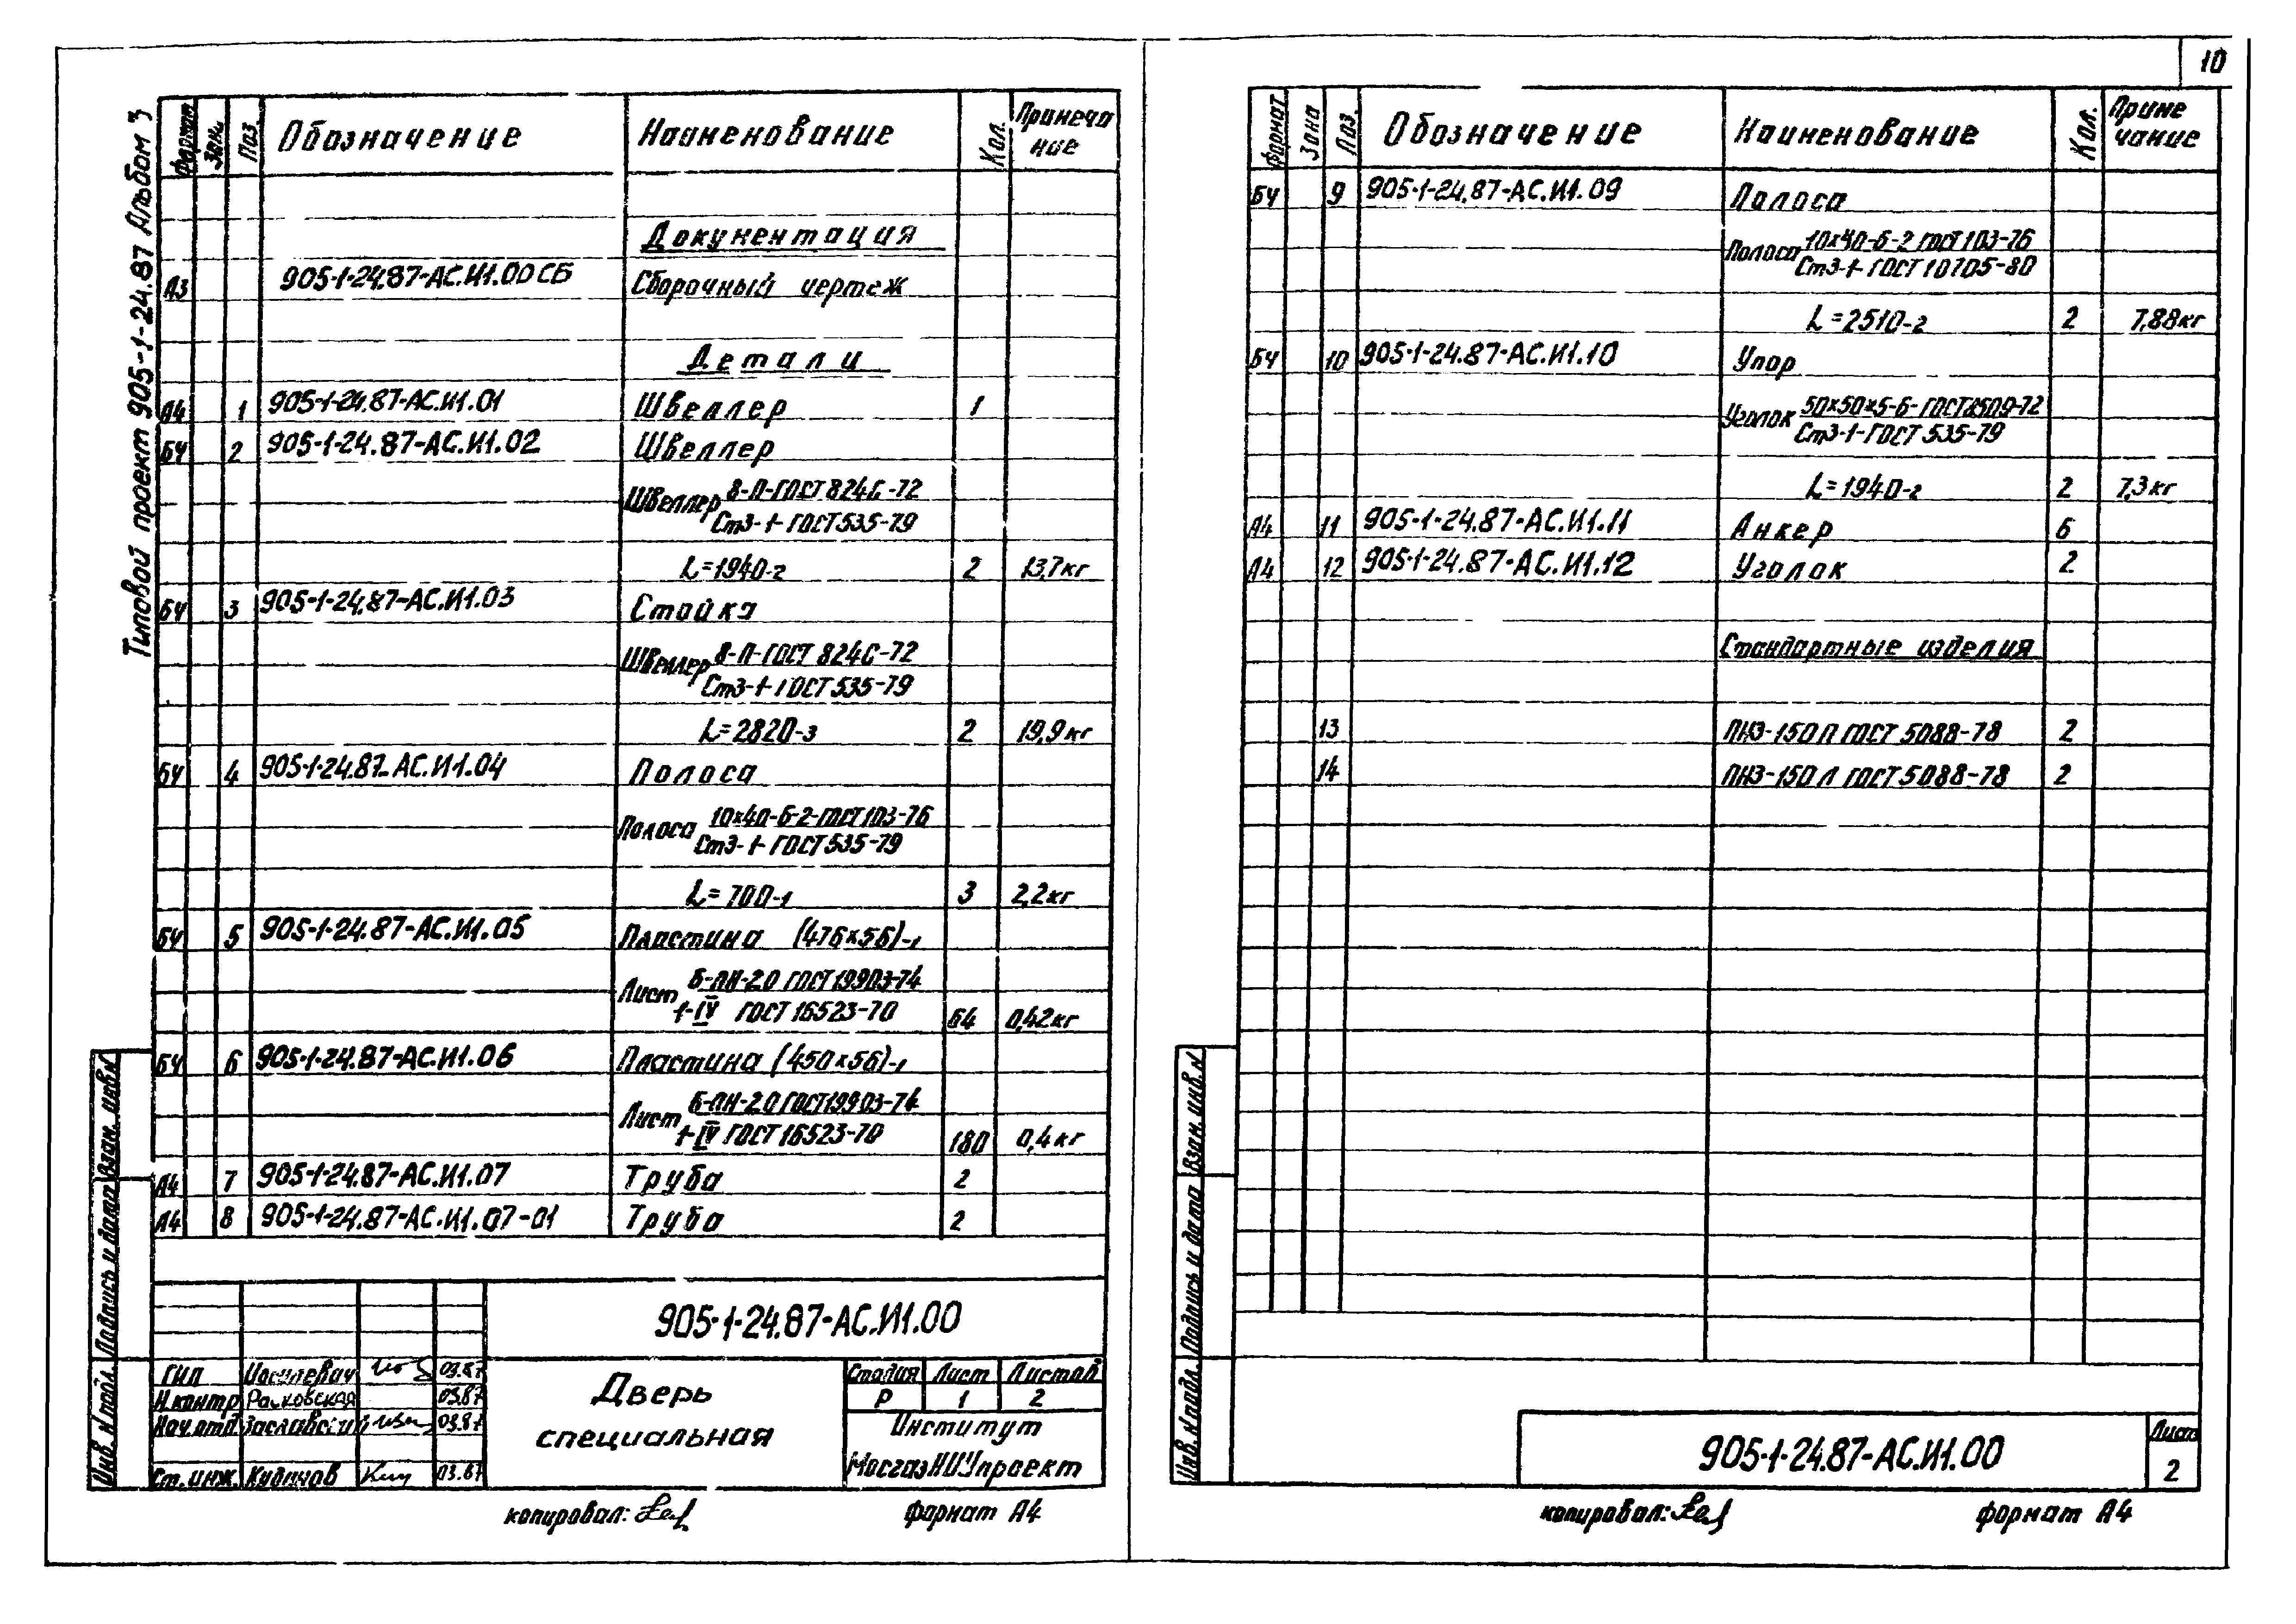 10
Типовой проект 905-1-24.87 Альбом 3
Формат Зона Поз. Обозначение Наименование Кол. Примечание
Документация
А3 905-1-24.87-АС.И1.00 СБ Сборочный чертеж
Детали
А4 1 905-1-24.87-АС.И1.01 Швеллер 1
БЧ 2 905-1-24.87-АС.И1.02 Швеллер
Швеллер 8-П-ГОСТ 8240-72
Ст3-1-ГОСТ 535-79
L=1940-2 2 13,7кг
БЧ 3 905-1-24.87-АС.И1.03 Стойка
Швеллер 8-П-ГОСТ 8240-72
Ст3-1-ГОСТ 535-79
L=2820-3 2 19,9кг
БЧ 4 905-1-24.87-АС.И1.04 Полоса
Полоса 10х40-Б-2-ГОСТ 103-76
Ст3-1-ГОСТ 535-79
L=700-1 3 2,2кг
БЧ 5 905-1-24.87-АС.И1.05 Пластина (476х56)-1
Лист Б-ПН-2.0 ГОСТ 19903-74
1-IV ГОСТ 16523-70 64 0,42кг
БЧ 6 905-1-24.87-АС.И1.06 Пластина (450х56)-1
Лист Б-ПН-2.0 ГОСТ 19903-74
1-IV ГОСТ 16523-70 180 0,4кг
А4 7 905-1-24.87-АС.И1.07 Труба 2
А4 8 905-1-24.87-АС.И1.07-01 Труба 2
Взам. инв. N
Подпись и дата
Инв. N подл.
905-1-24.87-АС.И1.00
ГИП 03.87
Н.контр Расковская 03.87
Нач.отд. Заславский 03.87
Ст.инж. 03.87
Дверь
специальная
Стадия Лист Листов
Р 1 2
Институт
МосгазНИИпроект
копировал: формат А4
Формат Зона Поз. Обозначение Наименование Кол. Примечание
БЧ 9 905-1-24.87-АС.И1.09 Полоса
Полоса 10х40-Б-2 ГОСТ 103-76
Ст3-1-ГОСТ 10705-80
L=2510-2 2 7,88кг
БЧ 10 905-1-24.87-АС.И1.10 Упор
Уголок 50х50х5-Б-ГОСТ 8509-72
Ст3-1-ГОСТ 535-79
L=1940-2 2 7,3кг
А4 11 905-1-24.87-АС.И1.11 Анкер 6
А4 12 905-1-24.87-АС.И1.12 Уголок 2
Стандартные изделия
13 ПН3-150 П ГОСТ 5088-78 2
14 ПН3-150 Л ГОСТ 5088-78 2
Взам. инв. N
Подпись и дата
Инв. N подл.
905-1-24.87-АС.И1.00
Лист
2
копировал: формат А4